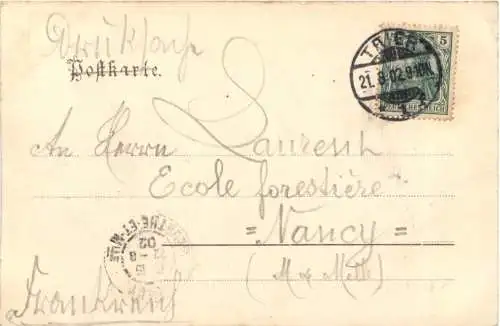 Drucksache
Postkarte.
5
TRIER
21.8.02.9-10V.
An Herrn Laurent
Ecole forestière
= Nancy =
(M & Mlle)
MEURTHE-ET-M
02
Frankreich